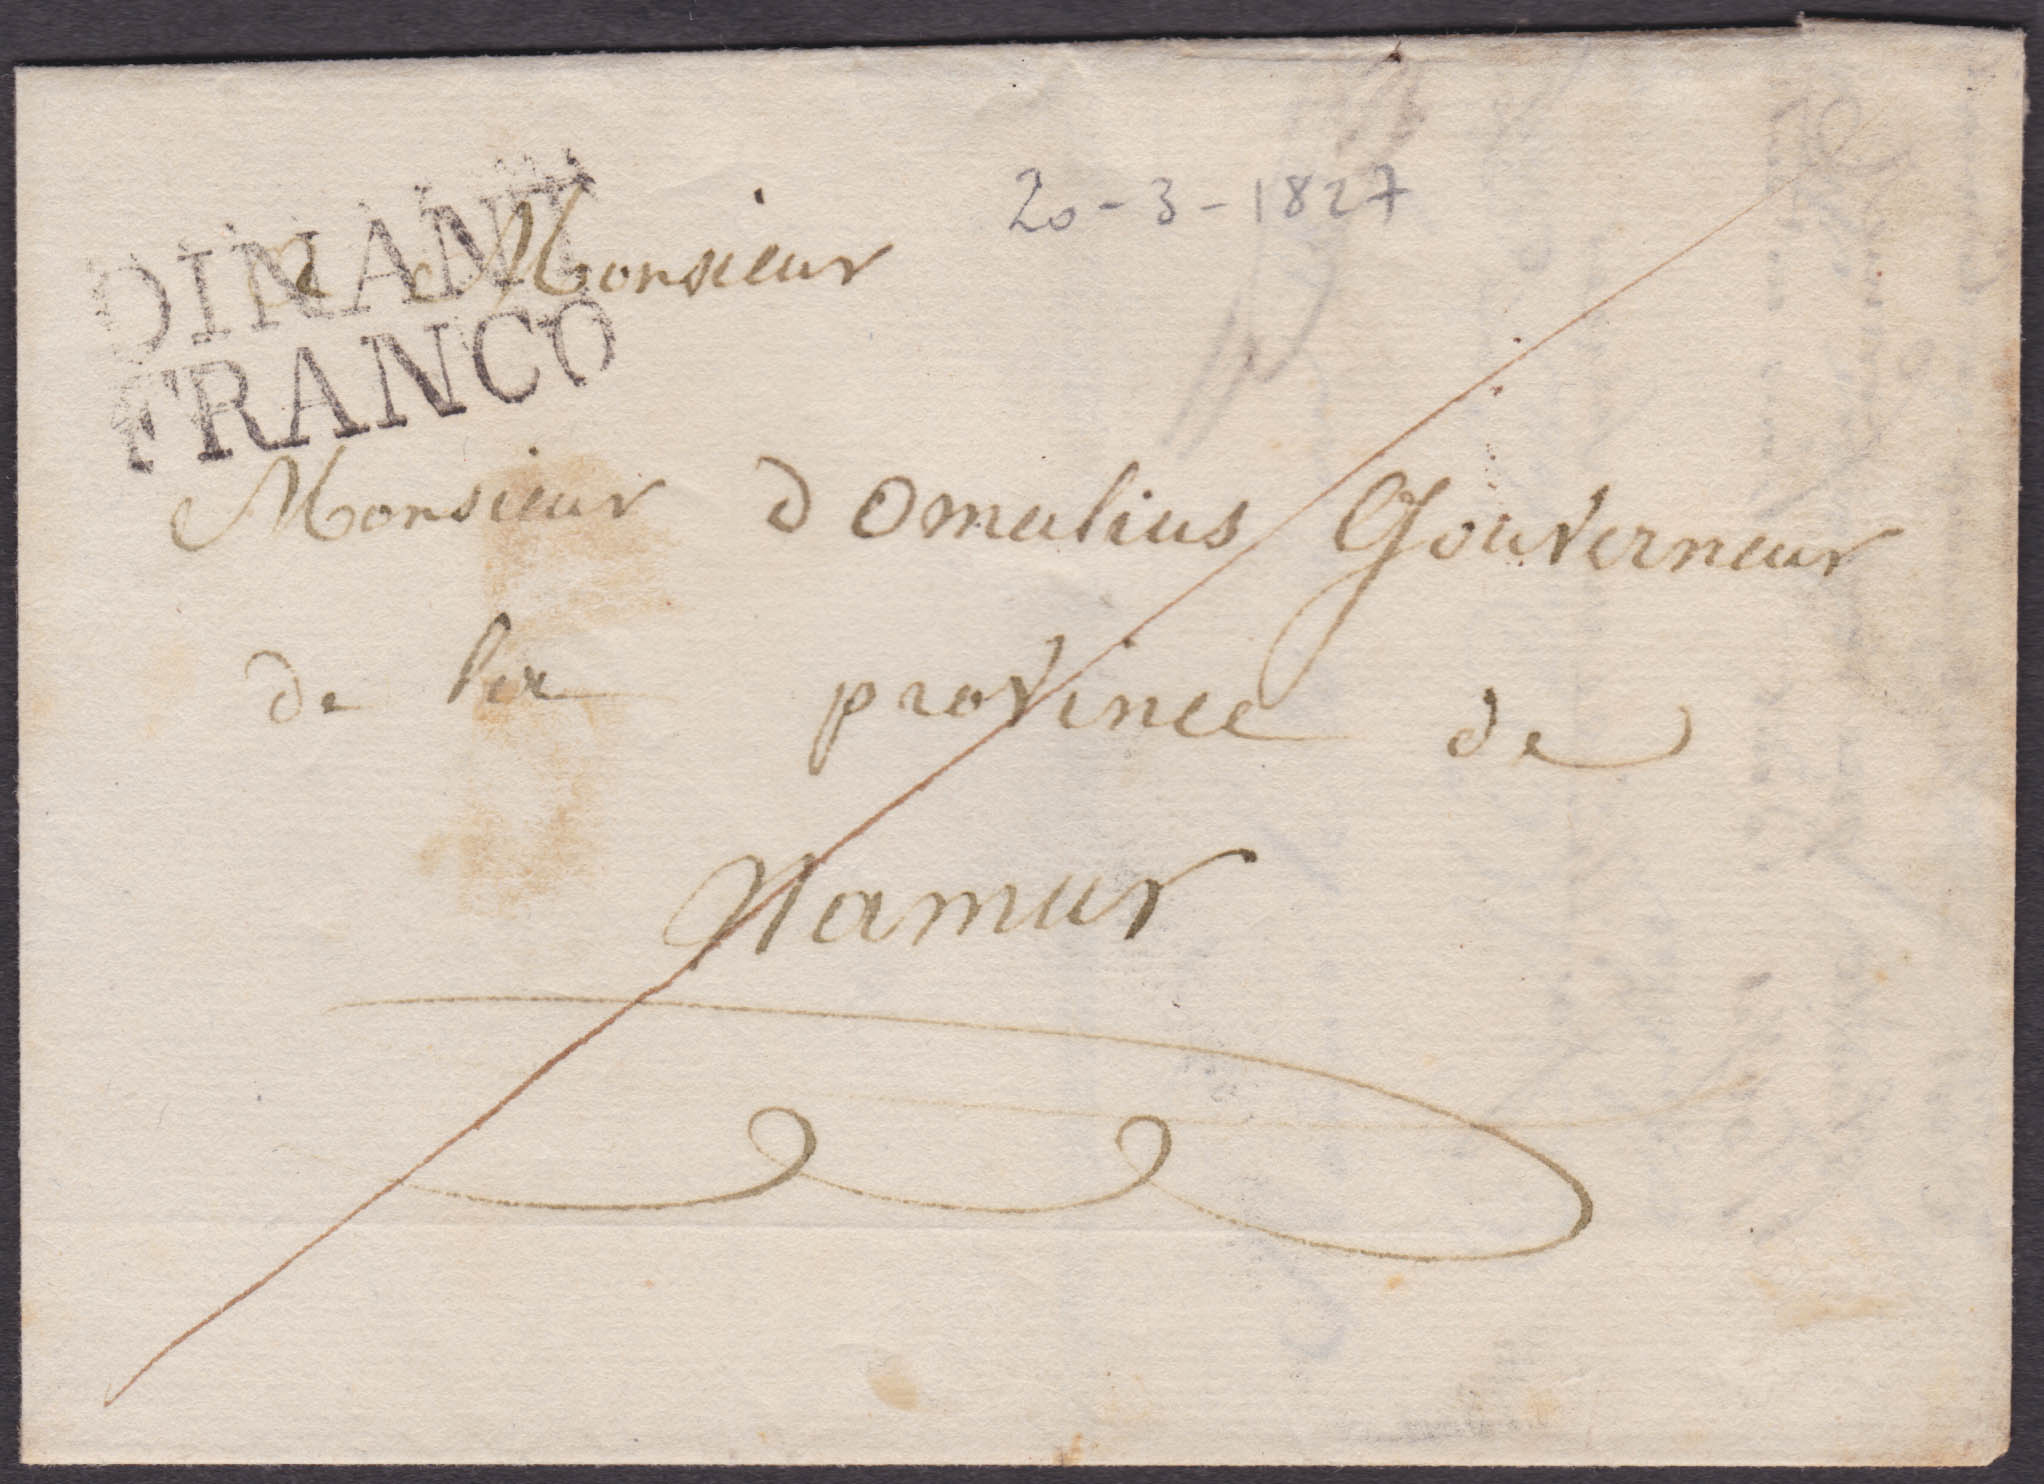 DINANT
FRANCO
20-3-1827
A Monsieur
Monsieur d Omalius Gouverneur
de la province de
Namur